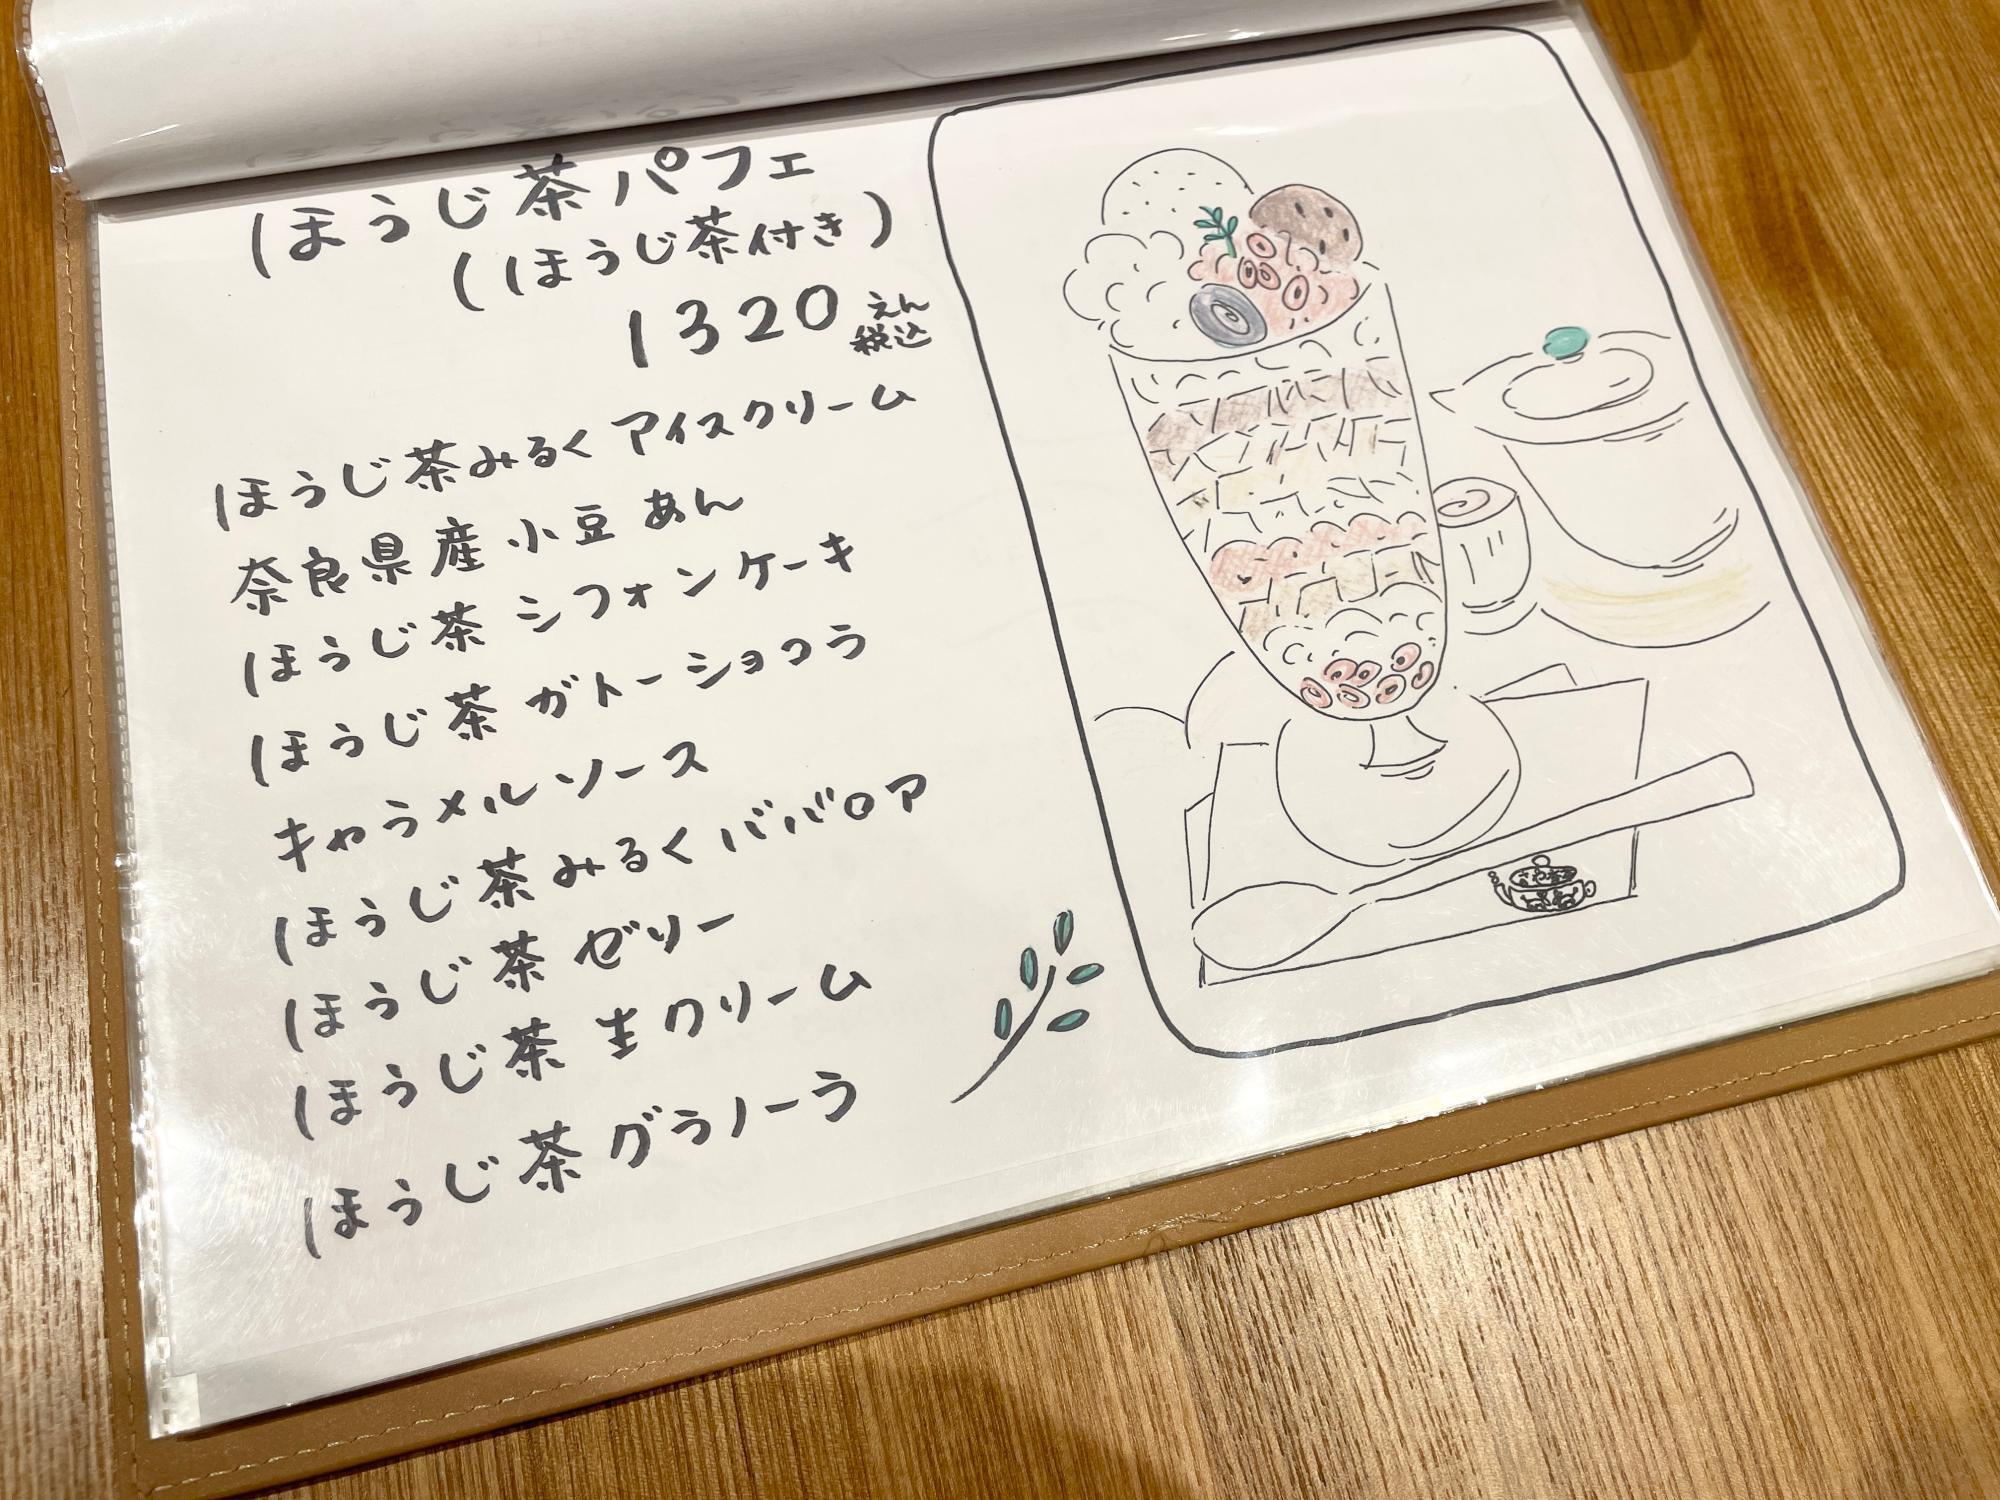 ほうじ茶パフェ
(ほうじ茶付き)
1320えん税込
ほうじ茶みるくアイスクリーム
奈良県産小豆あん
ほうじ茶シフォンケーキ
ほうじ茶ガトーショコラ
キャラメルソース
ほうじ茶みるくババロア
ほうじ茶ゼリー
ほうじ茶生クリーム
ほうじ茶グラノーラ